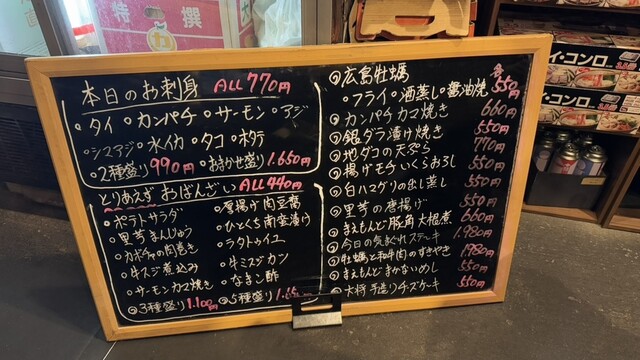 特撰
本日のお刺身 ALL 770円
・タイ ・カンパチ ・サーモン ・アジ
・シマアジ ・水イカ ・タコ ・ホタテ
・2種盛り 990円 ・おまかせ盛り 1.650円
とりあえず おばんざい ALL 440円
・ポテトサラダ
・里芋まんじゅう
・カボチャの肉巻き
・牛スジ煮込み
・サーモンカマ焼き
・3種盛り 1.100円
・厚揚げ肉豆腐
・ひとくち南蛮漬け
・ラタトゥイユ
・牛ミスジカン
・なまこ酢
・5種盛り
・広島牡蠣
・フライ ・酒蒸し ・醤油焼き 各550円
・カンパチカマ焼き 660円
・銀ダラ漬け焼き 550円
・地ダコの天ぷら 770円
・揚げモチいくらおろし 550円
・白ハマグリの出し蒸し 550円
・里芋の唐揚げ 550円
・きえもんど豚角大根煮 660円
・今日の気まぐれステーキ 1.980円
・牡蠣と和牛肉のすきやき 1980円
・きえもんどまかないめし 550円
・大将手造りチーズケーキ 550円
イ・コンロ